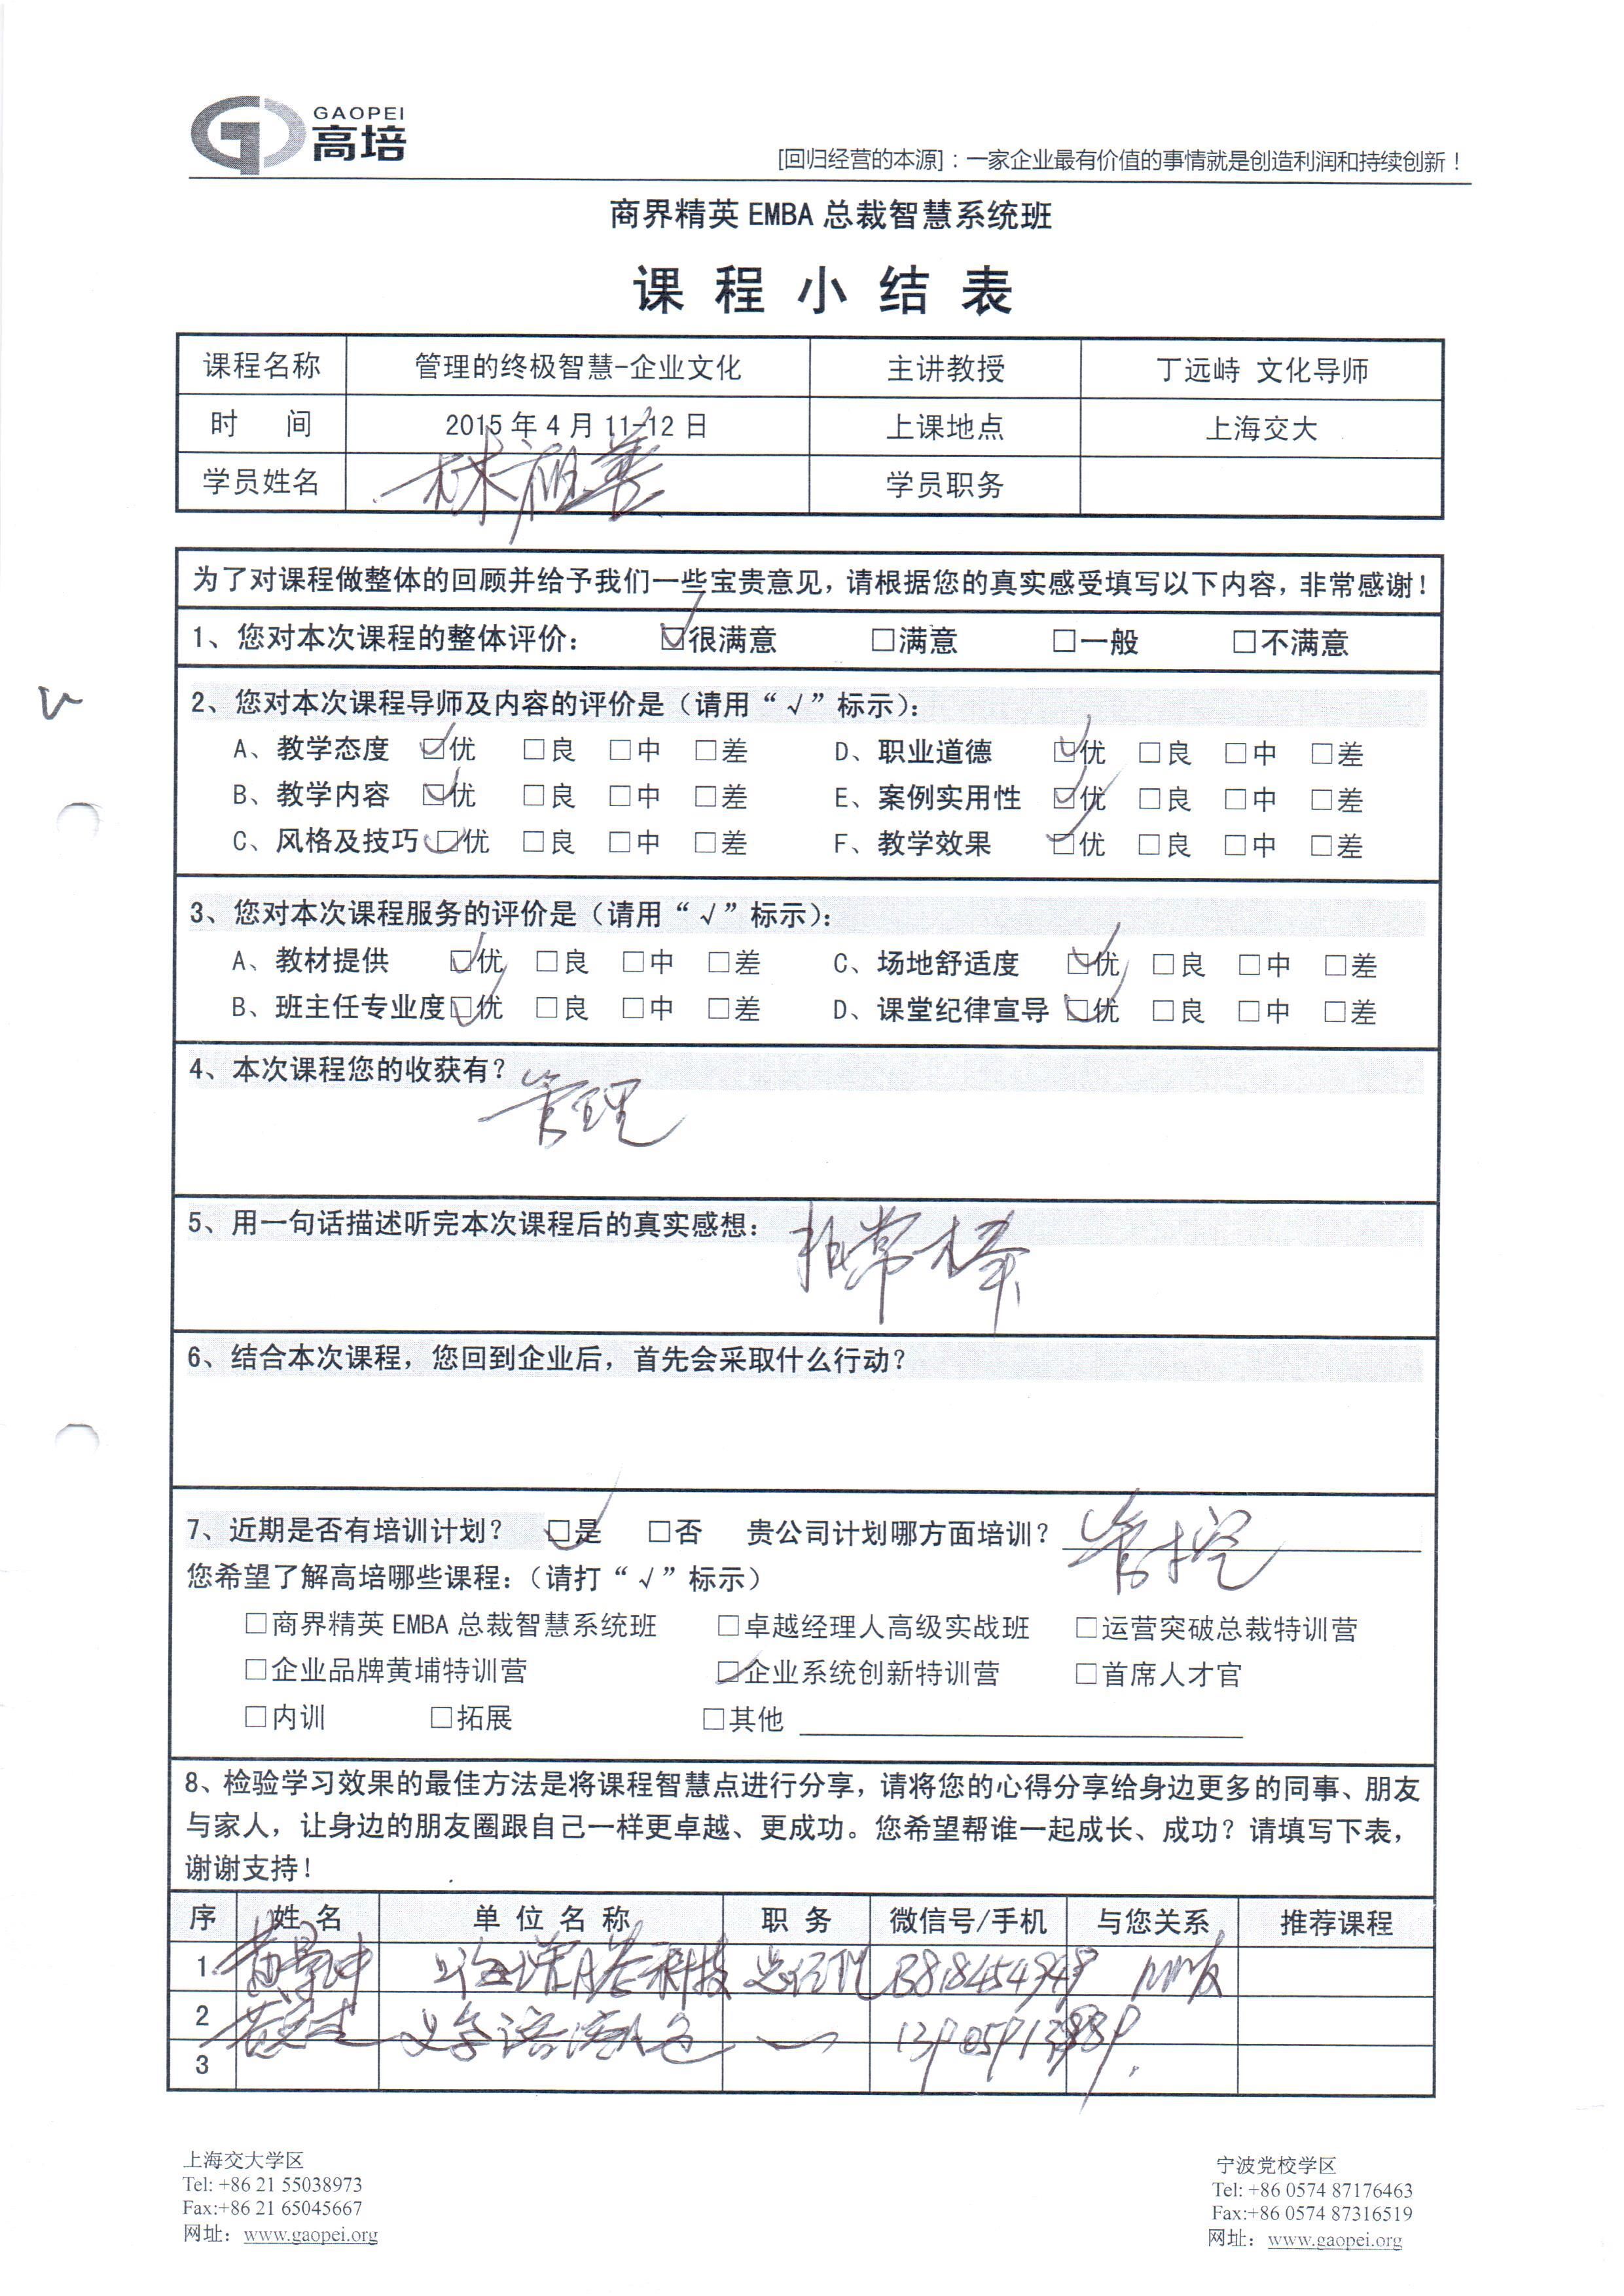 GAOPEI
高培
[回归经营的本源]：一家企业最有价值的事情就是创造利润和持续创新！
商界精英 EMBA 总裁智慧系统班
课 程 小 结 表
课程名称 管理的终极智慧-企业文化 主讲教授 丁远峙 文化导师
时 间 2015 年 4 月 11-12 日 上课地点 上海交大
学员姓名 林祖善 学员职务
为了对课程做整体的回顾并给予我们一些宝贵意见，请根据您的真实感受填写以下内容，非常感谢！
1、您对本次课程的整体评价： ☑很满意 □满意 □一般 □不满意
2、您对本次课程导师及内容的评价是（请用“√”标示）：
A、教学态度 ☑优 □良 □中 □差 D、职业道德 ☑优 □良 □中 □差
B、教学内容 ☑优 □良 □中 □差 E、案例实用性 ☑优 □良 □中 □差
C、风格及技巧 ☑优 □良 □中 □差 F、教学效果 ☑优 □良 □中 □差
3、您对本次课程服务的评价是（请用“√”标示）：
A、教材提供 ☑优 □良 □中 □差 C、场地舒适度 ☑优 □良 □中 □差
B、班主任专业度 ☑优 □良 □中 □差 D、课堂纪律宣导 ☑优 □良 □中 □差
4、本次课程您的收获有？
管理
5、用一句话描述听完本次课程后的真实感想： 常棒
6、结合本次课程，您回到企业后，首先会采取什么行动？
7、近期是否有培训计划？ ☑是 □否 贵公司计划哪方面培训？ 管控
您希望了解高培哪些课程：（请打“√”标示）
□商界精英 EMBA 总裁智慧系统班 □卓越经理人高级实战班 □运营突破总裁特训营
□企业品牌黄埔特训营 ☑企业系统创新特训营 □首席人才官
□内训 □拓展 □其他
8、检验学习效果的最佳方法是将课程智慧点进行分享，请将您的心得分享给身边更多的同事、朋友
与家人，让身边的朋友圈跟自己一样更卓越、更成功。您希望帮谁一起成长、成功？请填写下表，
谢谢支持！
序 姓 名 单 位 名 称 职 务 微信号/手机 与您关系 推荐课程
1 科技 总经理
2
3
上海交大学区
Tel: +86 21 55038973
Fax:+86 21 65045667
网址：www.gaopei.org
宁波党校学区
Tel: +86 0574 87176463
Fax:+86 0574 87316519
网址：www.gaopei.org